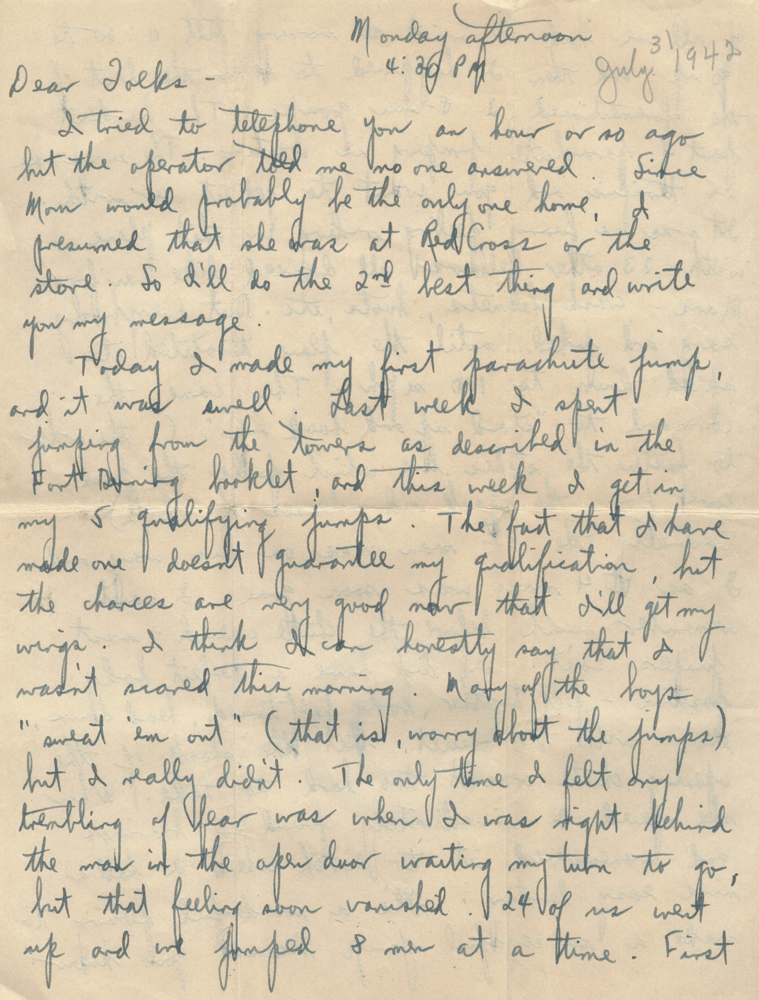 Monday afternoon
4:30 PM
July 31 1942
Dear Folks -
I tried to telephone you an hour or so ago
but the operator told me no one answered. Since
Mom would probably be the only one home, I
presumed that she was at Red Cross or the
store. So I'll do the 2nd best thing and write
you my message.
Today I made my first parachute jump,
and it was swell. Last week I spent
jumping from the towers as described in the
Fort Benning booklet, and this week I get in
my 5 qualifying jumps. The fact that I have
made one doesn't guarantee my qualification, but
the chances are very good now that I'll get my
wings. I think I can honestly say that I
wasn't scared this morning. Many of the boys
"sweat 'em out" (that is, worry about the jumps)
but I really didn't. The only time I felt any
trembling of fear was when I was right behind
the man in the open door waiting my turn to go,
but that feeling soon vanished. 24 of us went
up and we jumped 8 men at a time. First